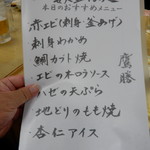 本日のおすすめメニュー
赤エビ(刺身 釜あげ)
刺身わかめ
鯛カブト焼
エビのホワロソース
ハゼの天ぷら
地どりのもも焼
杏仁アイス
鷹勝